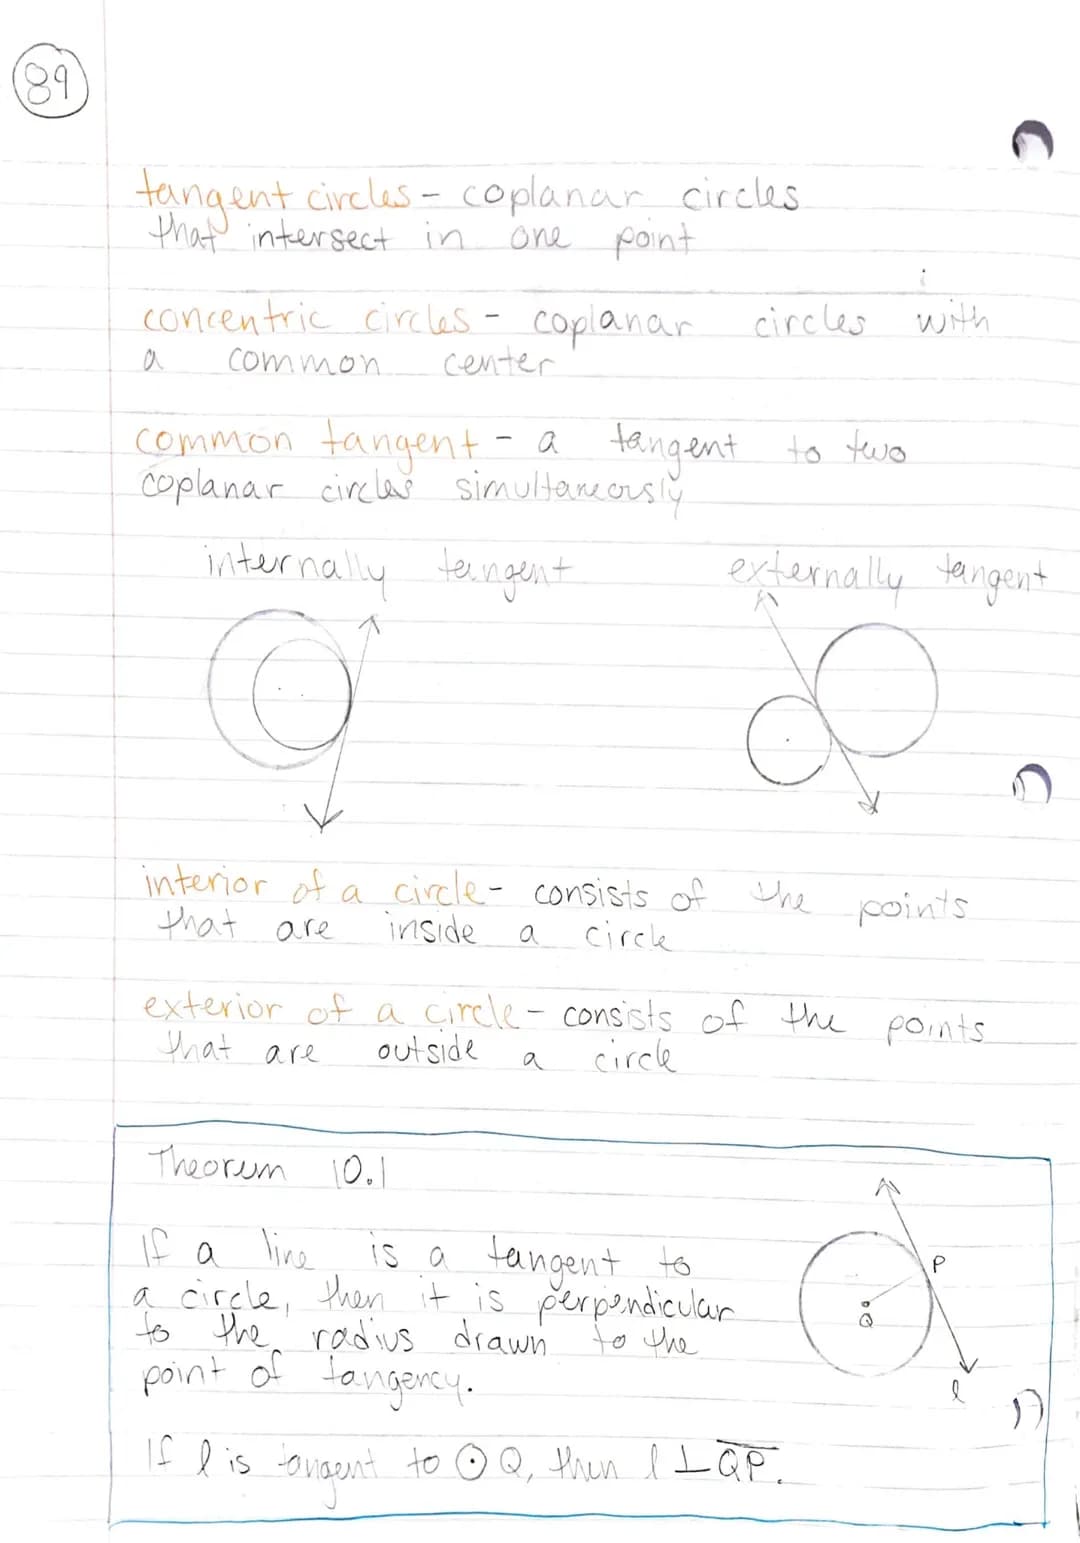 89
tangent circles - coplanar circles
that intersect in one point
concentric circles - coplanar circles with
a common center
common tangent - a tangent to two
coplanar circles simultaneously
internally tangent externally tangent
interior of a circle - consists of the points
that are inside a circle
exterior of a circle - consists of the points
that are outside a circle
Theorem 10.1
If a line is a tangent to
a circle, then it is perpendicular
to the radius drawn to the
point of tangency.
P
Q
l
If l is tangent to ⊙Q, then l ⊥ Q̅P̅.